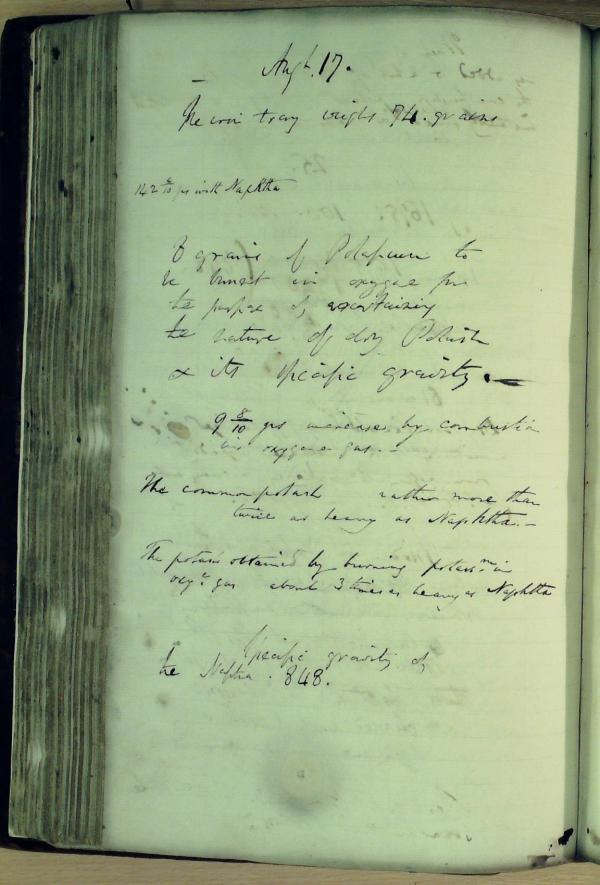 Augt. 17.
The iron tray weighs 74. grains
142 6/10 grs with Naphtha
8 grains of Potassium to
be burnt in oxygene for
the purpose of ascertaining
the nature of dry Potash
& its specific gravity. —
9 8/10 grs increase by combustion
in oxygene gas. —
The common potash rather more than
twice as heavy as Naphtha. —
The potash obtained by burning potassm in
oxyn gas about 3 times as heavy as Naphtha
Specific gravity of
the Naptha . 848.